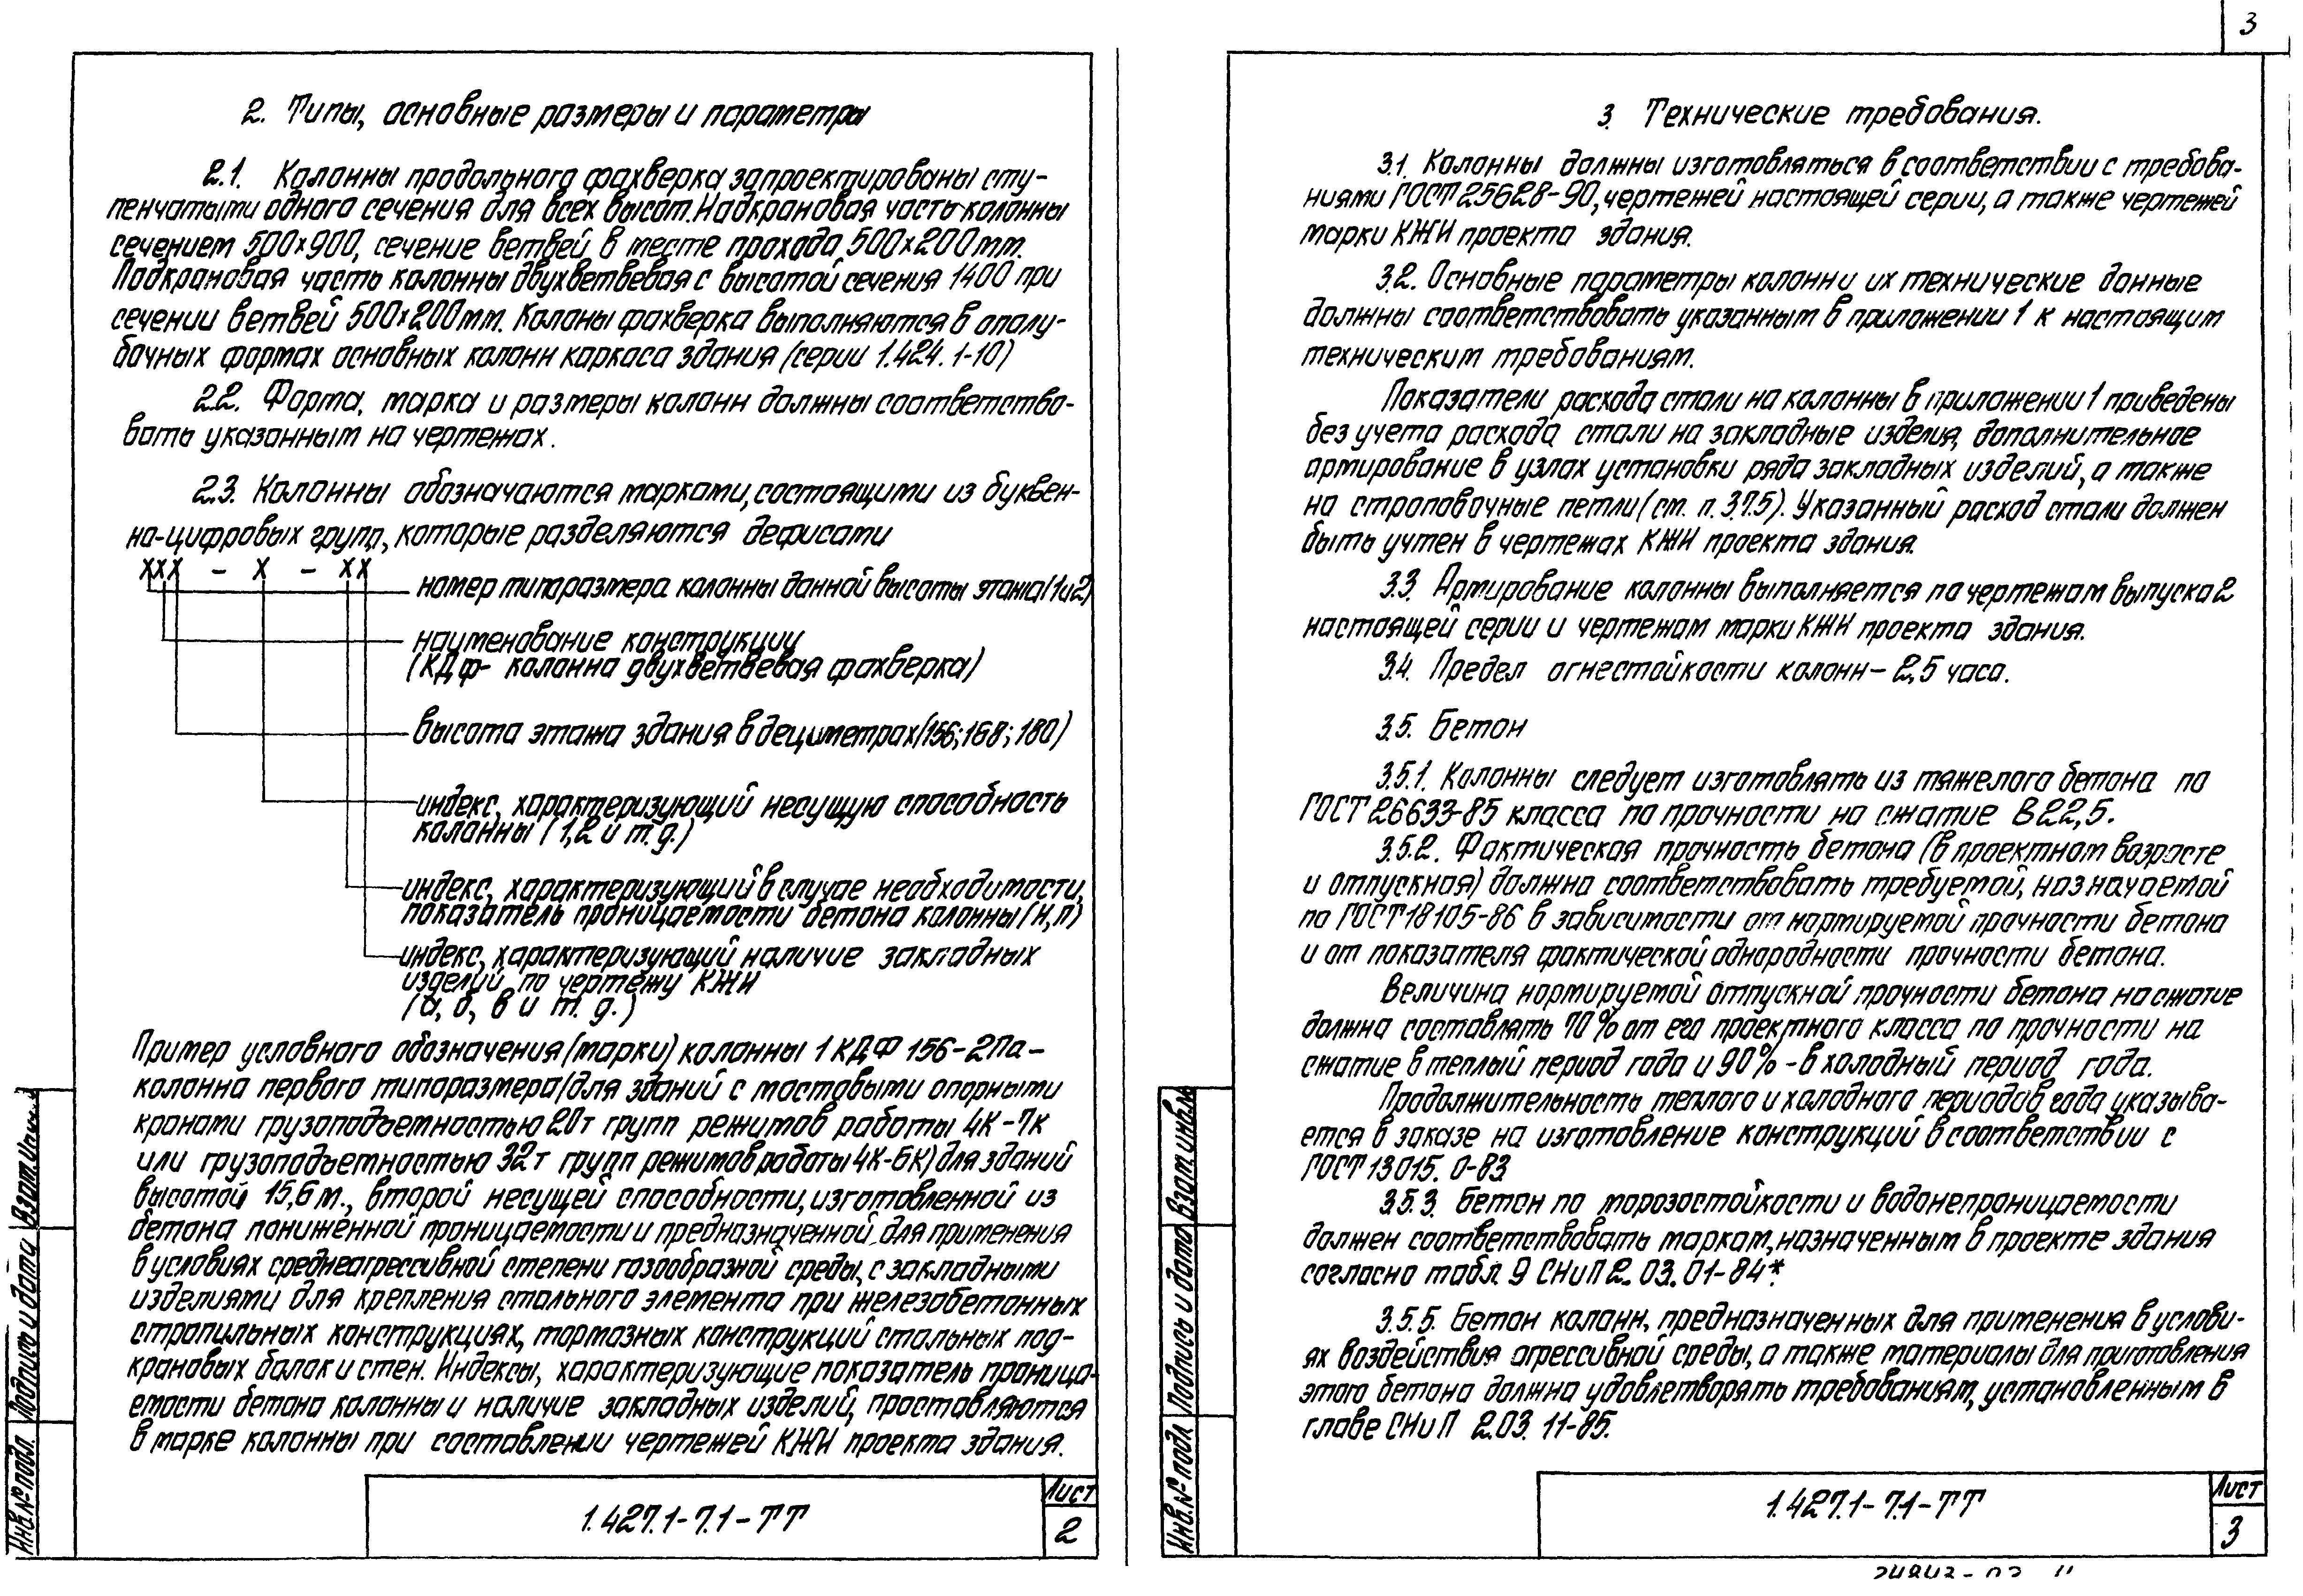 3
2. Типы, основные размеры и параметры
2.1. Колонны продольного фахверка запроектированы сту-
пенчатыми одного сечения для всех высот. Надкрановая часть колонны
сечением 500×900, сечение ветвей в месте прохода 500×200мм.
Подкрановая часть колонны двухветвевая с высотой сечения 1400 при
сечении ветвей 500×200мм. Колоны фахверка выполняются в опалу-
бочных формах основных колонн каркаса здания (серии 1.424.1-10)
2.2. Форма, марка и размеры колонн должны соответство-
вать указанным на чертежах.
2.3. Колонны обозначаются марками, состоящими из буквен-
но-цифровых групп, которые разделяются дефисами
ХХХ - Х - ХХ
номер типоразмера колонны данной высоты этажа (1и2)
наименование конструкции
(КДф- колонна двухветвевая фахверка)
высота этажа здания в дециметрах (156; 168; 180)
индекс, характеризующий несущую способность
колонны (1,2 и т.д.)
индекс, характеризующий в случае необходимости,
показатель проницаемости бетона колонны (Н,П)
индекс, характеризующий наличие закладных
изделий по чертежу КЖИ
(а, б, в и т.д.)
Пример условного обозначения (марки) колонны 1КДФ 156-2Па-
колонна первого типоразмера (для зданий с мостовыми опорными
кранами грузоподъемностью 20т групп режимов работы 4К-7К
или грузоподъемностью 32т групп режимов работы 4К-6К) для зданий
высотой 15,6м., второй несущей способности, изготовленной из
бетона пониженной проницаемости и предназначенной для применения
в условиях среднеагрессивной степени газообразной среды, с закладными
изделиями для крепления стального элемента при железобетонных
стропильных конструкциях, тормозных конструкций стальных под-
крановых балок и стен. Индексы, характеризующие показатель проница-
емости бетона колонны и наличие закладных изделий, проставляются
в марке колонны при составлении чертежей КЖИ проекта здания.
Инв.№ подл. Подпись и дата Взам.инв.№
1.427.1-7.1-ТТ
Лист
2
3. Технические требования.
3.1. Колонны должны изготовляться в соответствии с требова-
ниями ГОСТ 25628-90, чертежей настоящей серии, а также чертежей
марки КЖИ проекта здания.
3.2. Основные параметры колонн и их технические данные
должны соответствовать указанным в приложении 1 к настоящим
техническим требованиям.
Показатели расхода стали на колонны в приложении 1 приведены
без учета расхода стали на закладные изделия, дополнительное
армирование в узлах установки ряда закладных изделий, а также
на строповочные петли (см. п. 3.7.5). Указанный расход стали должен
быть учтен в чертежах КЖИ проекта здания.
3.3. Армирование колонны выполняется по чертежам выпуска 2
настоящей серии и чертежам марки КЖИ проекта здания.
3.4. Предел огнестойкости колонн - 2,5 часа.
3.5. Бетон
3.5.1. Колонны следует изготовлять из тяжелого бетона по
ГОСТ 26633-85 класса по прочности на сжатие В22,5.
3.5.2. Фактическая прочность бетона (в проектном возрасте
и отпускная) должна соответствовать требуемой, назначаемой
по ГОСТ 18105-86 в зависимости от нормируемой прочности бетона
и от показателя фактической однородности прочности бетона.
Величина нормируемой отпускной прочности бетона на сжатие
должна составлять 70% от его проектного класса по прочности на
сжатие в теплый период года и 90% - в холодный период года.
Продолжительность теплого и холодного периодов года указыва-
ется в заказе на изготовление конструкций в соответствии с
ГОСТ 13015.0-83
3.5.3. Бетон по морозостойкости и водонепроницаемости
должен соответствовать маркам, назначенным в проекте здания
согласно табл. 9 СНиП 2.03.01-84*.
3.5.5. Бетон колонн, предназначенных для применения в услови-
ях воздействия агрессивной среды, а также материалы для приготовления
этого бетона должна удовлетворять требованиям, установленным в
главе СНиП 2.03.11-85.
Инв.№ подл. Подпись и дата Взам.инв.№
1.427.1-7.1-ТТ
Лист
3